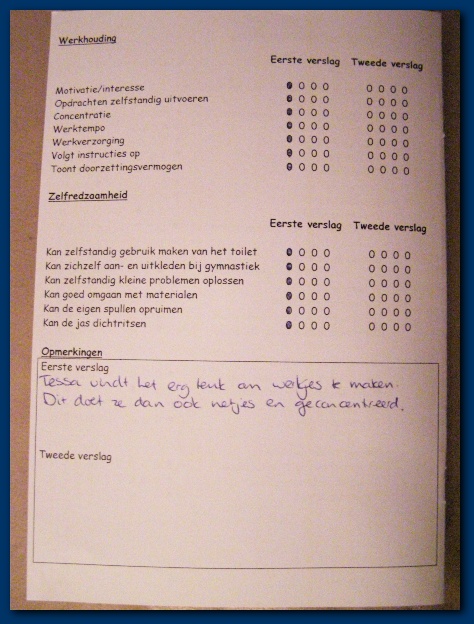 Werkhouding
Eerste verslag Tweede verslag
Motivatie/interesse
Opdrachten zelfstandig uitvoeren
Concentratie
Werktempo
Werkverzorging
Volgt instructies op
Toont doorzettingsvermogen
Zelfredzaamheid
Eerste verslag Tweede verslag
Kan zelfstandig gebruik maken van het toilet
Kan zichzelf aan- en uitkleden bij gymnastiek
Kan zelfstandig kleine problemen oplossen
Kan goed omgaan met materialen
Kan de eigen spullen opruimen
Kan de jas dichtritsen
Opmerkingen
Eerste verslag
Tessa vindt het erg leuk om werkjes te maken.
Dit doet ze dan ook netjes en geconcentreerd.
Tweede verslag